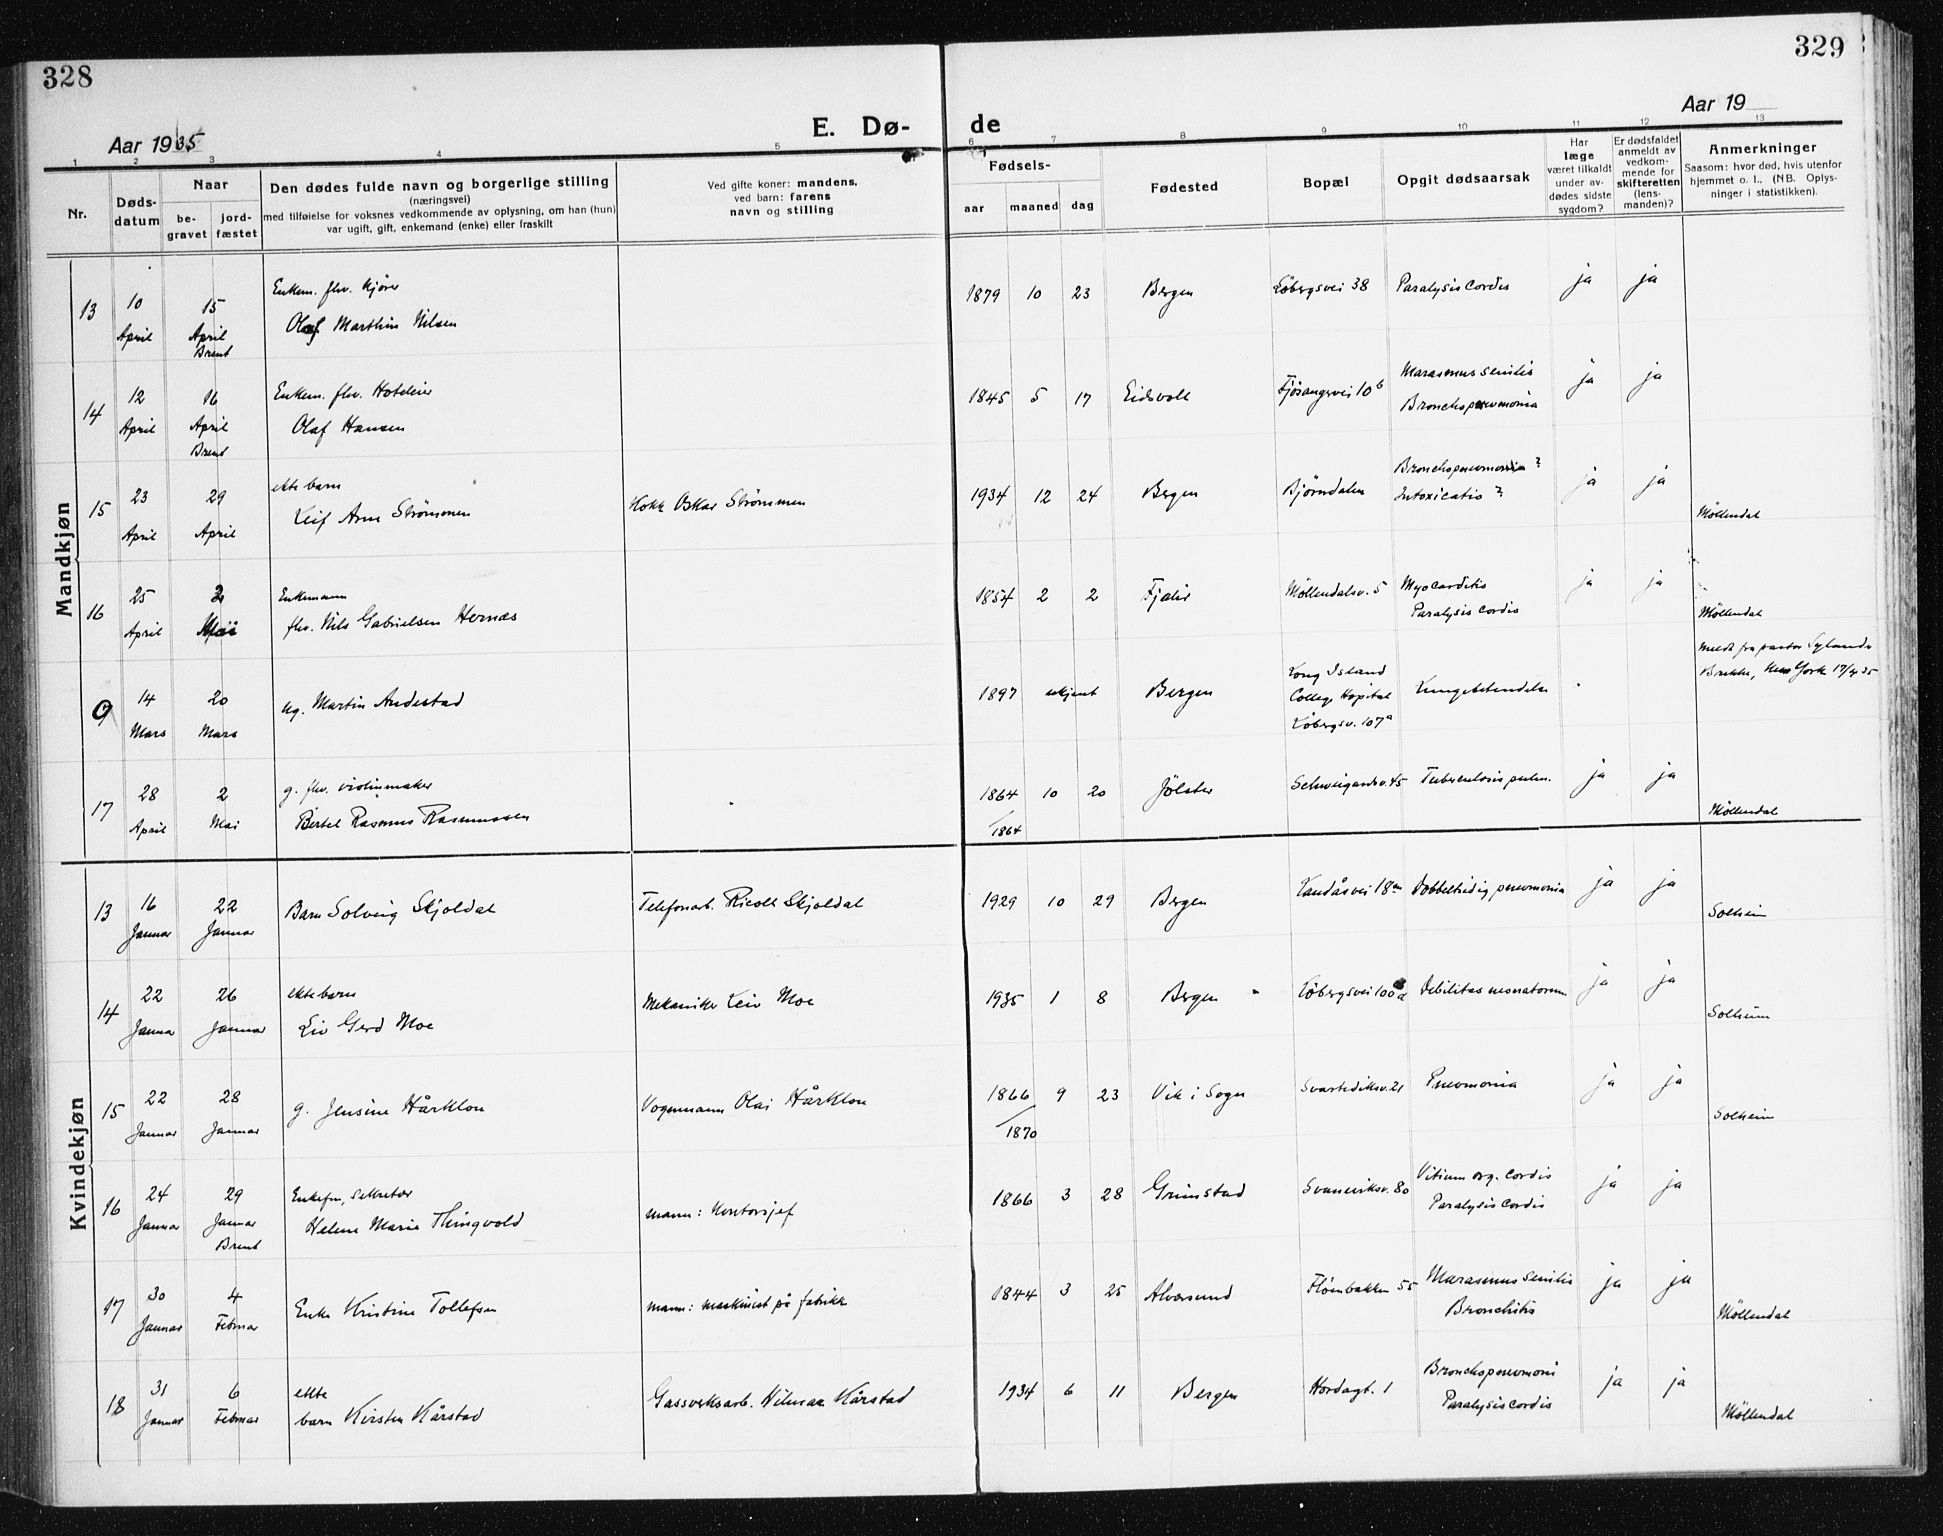 328
329
Aar 1935
E. Dø-
de
Aar 19
1 2 3 4 5 6 7 8 9 10 11 12 13
Nr.
Døds-
datum
Naar
be-
gravet
jord-
fæstet
Den dødes fulde navn og borgerlige stilling
(næringsvei)
med tilføielse for voksnes vedkommende av oplysning, om han (hun)
var ugift, gift, enkemand (enke) eller fraskilt
Ved gifte koner: mandens,
ved barn: farens
navn og stilling
Fødsels-
aar maaned dag
Fødested
Bopæl
Opgit dødsaarsak
Har
læge
været tilkaldt
under av-
dødes sidste
sygdom?
Er dødsfaldet
anmeldt av
vedkom-
mende for
skifteretten
(lens-
manden)?
Anmerkninger
Saasom: hvor død, hvis utenfor
hjemmet o. l., (NB. Oplys-
ninger i statistikken).
Mandkjøn
13 10 April 15 April Brent
Enkem. fhv. kjører
Olaf Marthin Nilsen
1879 10 23 Bergen Löbergsvei 38 Paralysis cordis ja ja
14 12 April 16 April Brent
Enkem. fhv. Hoteleier
Olaf Hansen
1845 5 17 Eidsvoll Fjösangervei 10b Marasmus senilis
Bronchopneumonia ja ja
15 23 April 29 April
ekte barn
Leif Arne Strömmen
Kokk Oskar Strömmen
1934 12 24 Bergen Björndalen Bronchopneumonia?
Intoxicatio? ja ja Möllendal
16 25 April 2 Mai
Enkemann
fhv. Nils Gabrielsen Hernæs
1854 2 2 Fjaler Möllendalsv. 5 Myocarditis
Paralysis cordis ja ja Möllendal
9 14 Mars 20 Mars
ug. Martin Andestad
1897 ukjent Bergen Long Island
College Hospital
Löbergsv. 107a
Lungebetendelse
Meldt fra pastor
New York 17/4 35
17 28 April 2 Mai
g. fhv. violinmaker
Bertel Rasmus Rasmussen
1864 10 20 Jölster Schweigaardsv. 45 Tuberculosis pulm. ja ja
/1864
Möllendal
Kvindekjøn
13 16 Januar 22 Januar
Barn Solveig Skjoldal
Telefonarb. Ricoll Skjoldal
1929 10 29 Bergen Landåsvei 18 Dobbeltsidig pneumonia ja ja Solheim
14 22 Januar 26 Januar
ekte barn
Liv Gerd Moe
Mekaniker Leiv Moe
1935 1 8 Bergen Löbergsvei 100a Debilitas neonatorum ja ja Solheim
15 22 Januar 28 Januar
g. Jensine Hårklou
Vognmann Olai Hårklou
1866 9 23 Vik i Sogn Svartediksv. 21 Pneumonia ja ja
/1870
Solheim
16 24 Januar 29 Januar Brent
Enkefru, Sekretær
Helene Marie Thingvold
mann: Kontorsjef
1866 3 28 Grimstad Svaneviksv. 80 Vitium org. cordis
Paralysis cordis ja ja
17 30 Januar 4 Februar
Enke Kristine Tollefsen
mann: maskinist på fabrikk
1844 3 25 Alversund Flöenbakken 55 Marasmus senilis
Bronchitis ja ja Möllendal
18 31 Januar 6 Februar
ekte
barn Kirsten Kårstad
Gassverksarb. Hilmar Kårstad
1934 6 11 Bergen Hordagt. 1 Bronchopneumoni
Paralysis cordis ja ja Möllendal